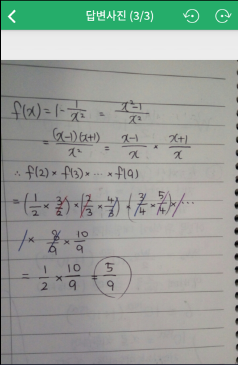 답변사진 (3/3)
f(x) = 1 - 1/x² = x²-1/x²
= (x-1)(x+1)/x² = x-1/x × x+1/x
∴ f(2) × f(3) × … × f(9)
= (1/2 × 3/2) × (2/3 × 4/3) × (3/4 × 5/4) × …
× 8/9 × 10/9
= 1/2 × 10/9 = 5/9